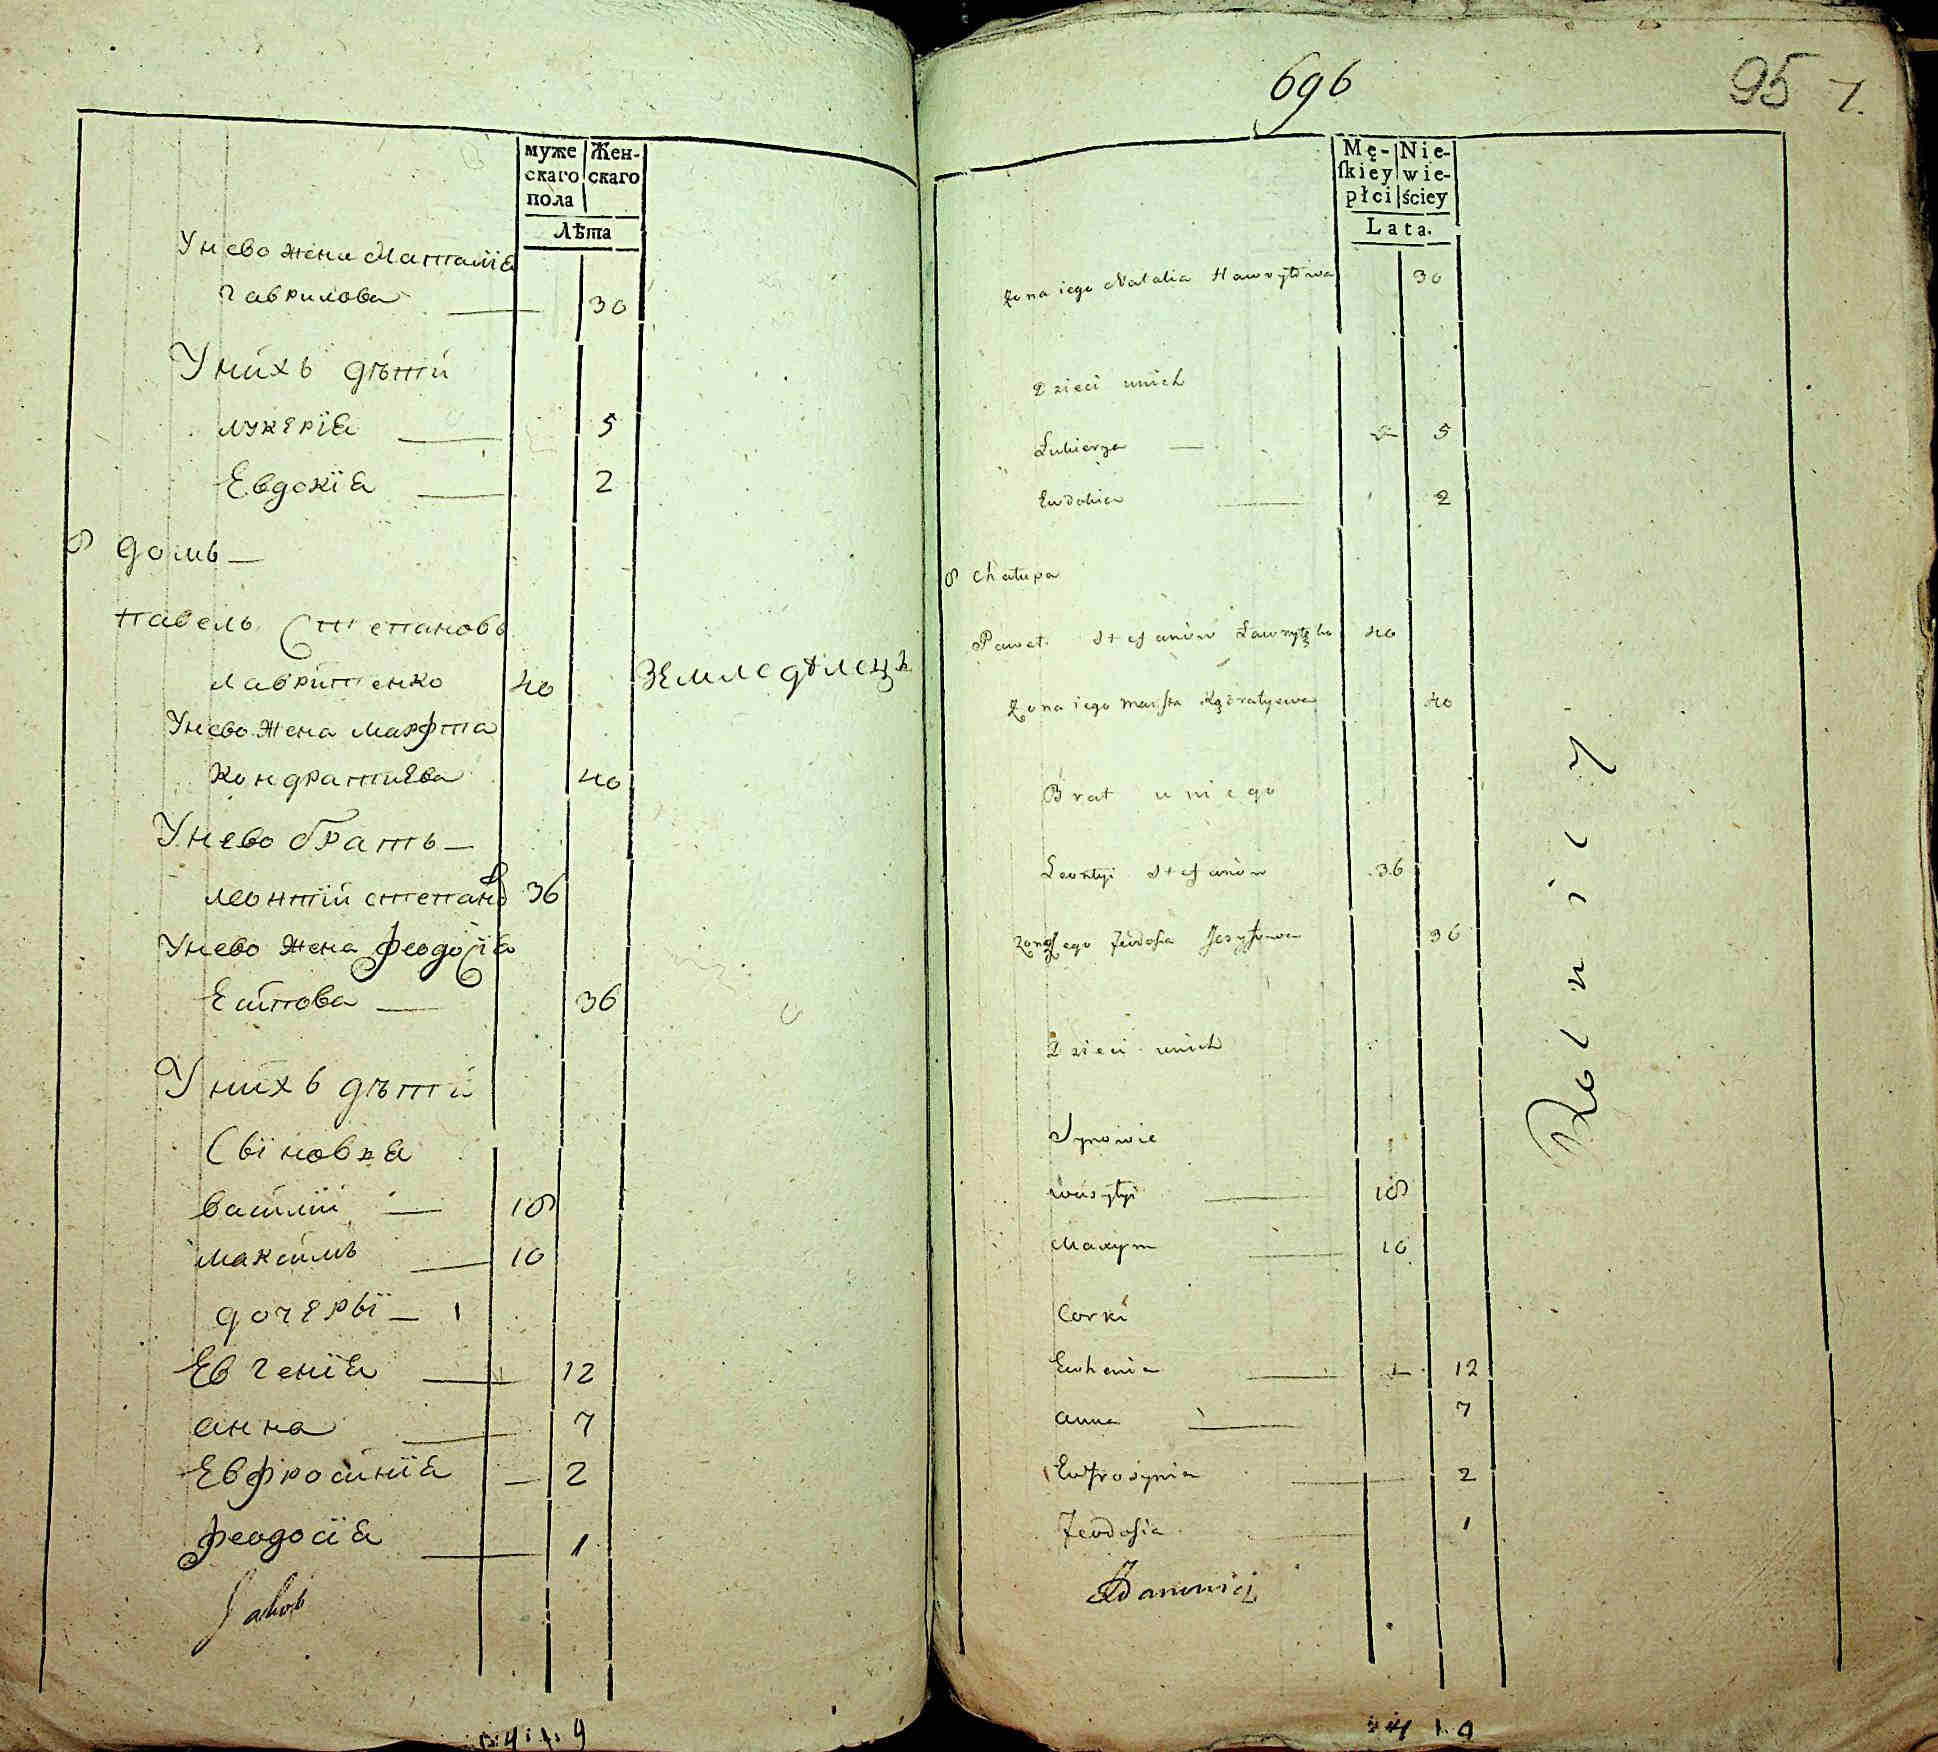 муже Жен-
скаго скаго
пола
Лѣта
Унево жена Наталия
Гаврилова 30
Унихъ дѣти
лукерїя 5
Евдокїя 2
8 домъ
павелъ Степановъ
лавриненко 40 земледѣлецъ
Унево жена марфта
кондратиева 40
Унево братъ
леонтій степановъ 36
Унево жена феодосїя
Есипова 36
Унихъ дѣти
Сыновья
василїй 18
максимъ 10
дочеры
Евгенїя 12
анна 7
Евфросинїя 2
феодосїя 1
Jakob
4 1 9
696
95
7.
Mę- Nie-
ſkiey wie-
płci ściey
Lata.
Żona iego Natalia Hawryłowa 30
Dzieci unich
Łukierya 5
Eudokia 2
8 Chałupa
Paweł Stefanów 40
Żona iego Marfta Kądratyewa 40
Brat uniego
Leontyi Stefanów 36
Żona Jego Feodosia Josyfowa 36
Dzieci unich
Synowie
Wasylyi 18
Maxym 10
Corki
Euhenia 12
Anna 7
Eufrosynia 2
Feodosia 1
Rolnicy
4 1 9